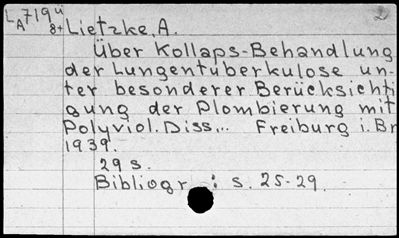 LA 7194 8+ Lietzke, A.
Über Kollaps-Behandlung
der Lungentuberkulose un-
ter besonderer Berücksichti
gung der Plombierung mit
Polyviol. Diss... Freiburg i. Br
1939.
29 s.
Bibliogr.: s. 25-29.